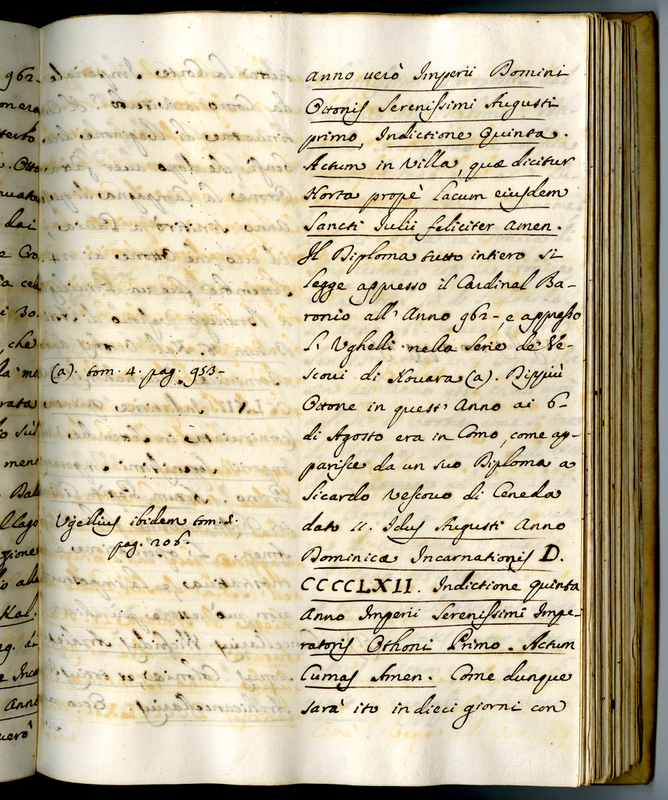 anno verò Imperii Domini
Ottonis Serenissimi Augusti
primo, Indictione Quinta.
Actum in Villa, quæ dicitur
Horta propè Lacum eiusdem
Sancti Iulii feliciter amen.
Il Diploma tutto intiero si
legge appresso il Cardinal Ba-
ronio all' Anno 962-, e appresso
l' Vghelli nella Serie de' Ve-
scovi di Novara (a). Dippiù
Ottone in quest' Anno ai 6-
di Agosto era in Como, come ap-
parisce da un suo Diploma a
Sicardo Vescovo di Ceneda
dato II. Idus Augusti Anno
Dominicæ Incarnationis D.
CCCCLXII. Indictione quinta
Anno Imperii Serenissimi Impe-
ratoris Othoni Primo. Actum
Cumas Amen. Come dunque
sarà ito in dieci giorni con
(a). tom. 4. pag. 953-
Vgellius ibidem tom. 5.
pag. 206.
962-
che
Otto
dai
i 30.
Kal.
Anno
verò